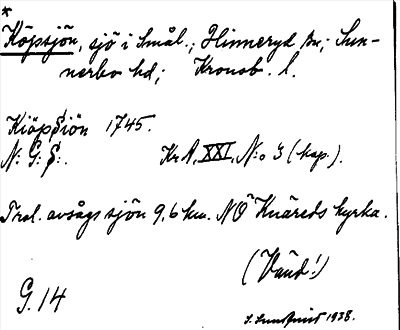 *
Köpsjön, sjö i Smål.; Hinneryd sn; Sun-
nerbo hd; Kronob. l.
Kiöpsiön 1745.
N: G: S:. Kr A, XXI, N:o 3 (kop.).
Trol. avsågs sjön 9,6 km. NÖ Knäreds kyrka.
(Vänd!)
G. 14
S. Sundqvist 1938.